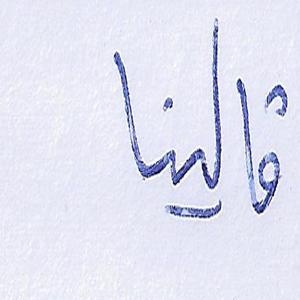 قالينا